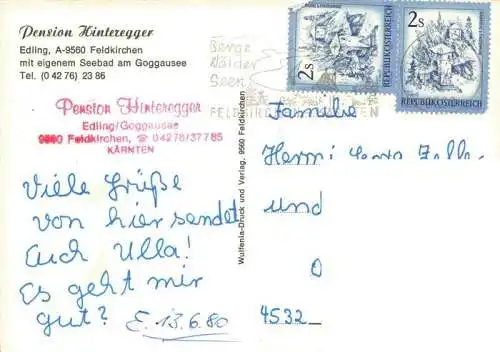 Pension Hinteregger
Edling, A-9560 Feldkirchen
mit eigenem Seebad am Goggausee
Tel. (0 42 76) 23 86
Berge
Wälder
Seen
2s
REPUBLIK ÖSTERREICH
2s
REPUBLIK ÖSTERREICH
Pension Hinteregger
Edling/Goggausee
9560 Feldkirchen, ☎ 04276/37785
KÄRNTEN
Viele Grüße
von hier sendet
Euch Ulla!
Es geht mir
gut?
E. 13.6.80
Wulfenia-Druck und Verlag, 9560 Feldkirchen
Familie
und
4532